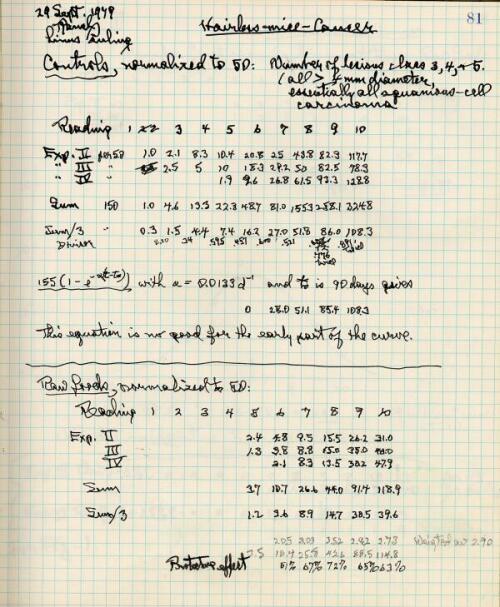 29 Sept. 1979
81
Ranch
Linus Pauling
Hairless-mice-Cancer
Controls, normalized to 50: Number of lesions class 3, 4, + 5.
(all > 4 mm diameter,
essentially all squamous-cell
carcinoma
Reading 1 2 3 4 5 6 7 8 9 10
Exp. II per 50 1.0 2.1 8.3 10.4 20.8 25 43.8 82.3 117.7
III " 2.5 5 10 18.3 29.2 50 82.5 78.3
IV " 1.9 9.6 26.8 61.5 93.3 128.8
Sum 150 1.0 4.6 13.3 22.3 48.7 81.0 155.3 258.1 324.8
Sum/3 " 0.3 1.5 4.4 7.4 16.2 27.0 51.8 86.0 108.3
155(1-e^-α(t-t0)) with α = 0.0133 d⁻¹ and t0 is 90 days gives
0 28.0 51.1 85.4 108.3
This equation is no good for the early part of the curve.
Raw foods, normalized to 50:
Reading 1 2 3 4 5 6 7 8 9 10
Exp. II 2.4 4.8 9.5 15.5 26.2 31.0
III 1.3 3.8 8.8 15.0 35.0 40.0
IV 2.1 8.3 13.5 30.2 47.9
Sum 3.7 10.7 26.6 44.0 91.4 118.9
Sum/3 1.2 3.6 8.9 14.7 30.5 39.6
2.05 3.03 3.52 2.82 2.73 Weighted av 2.90
Protective effect 51% 67% 72% 65% 63%